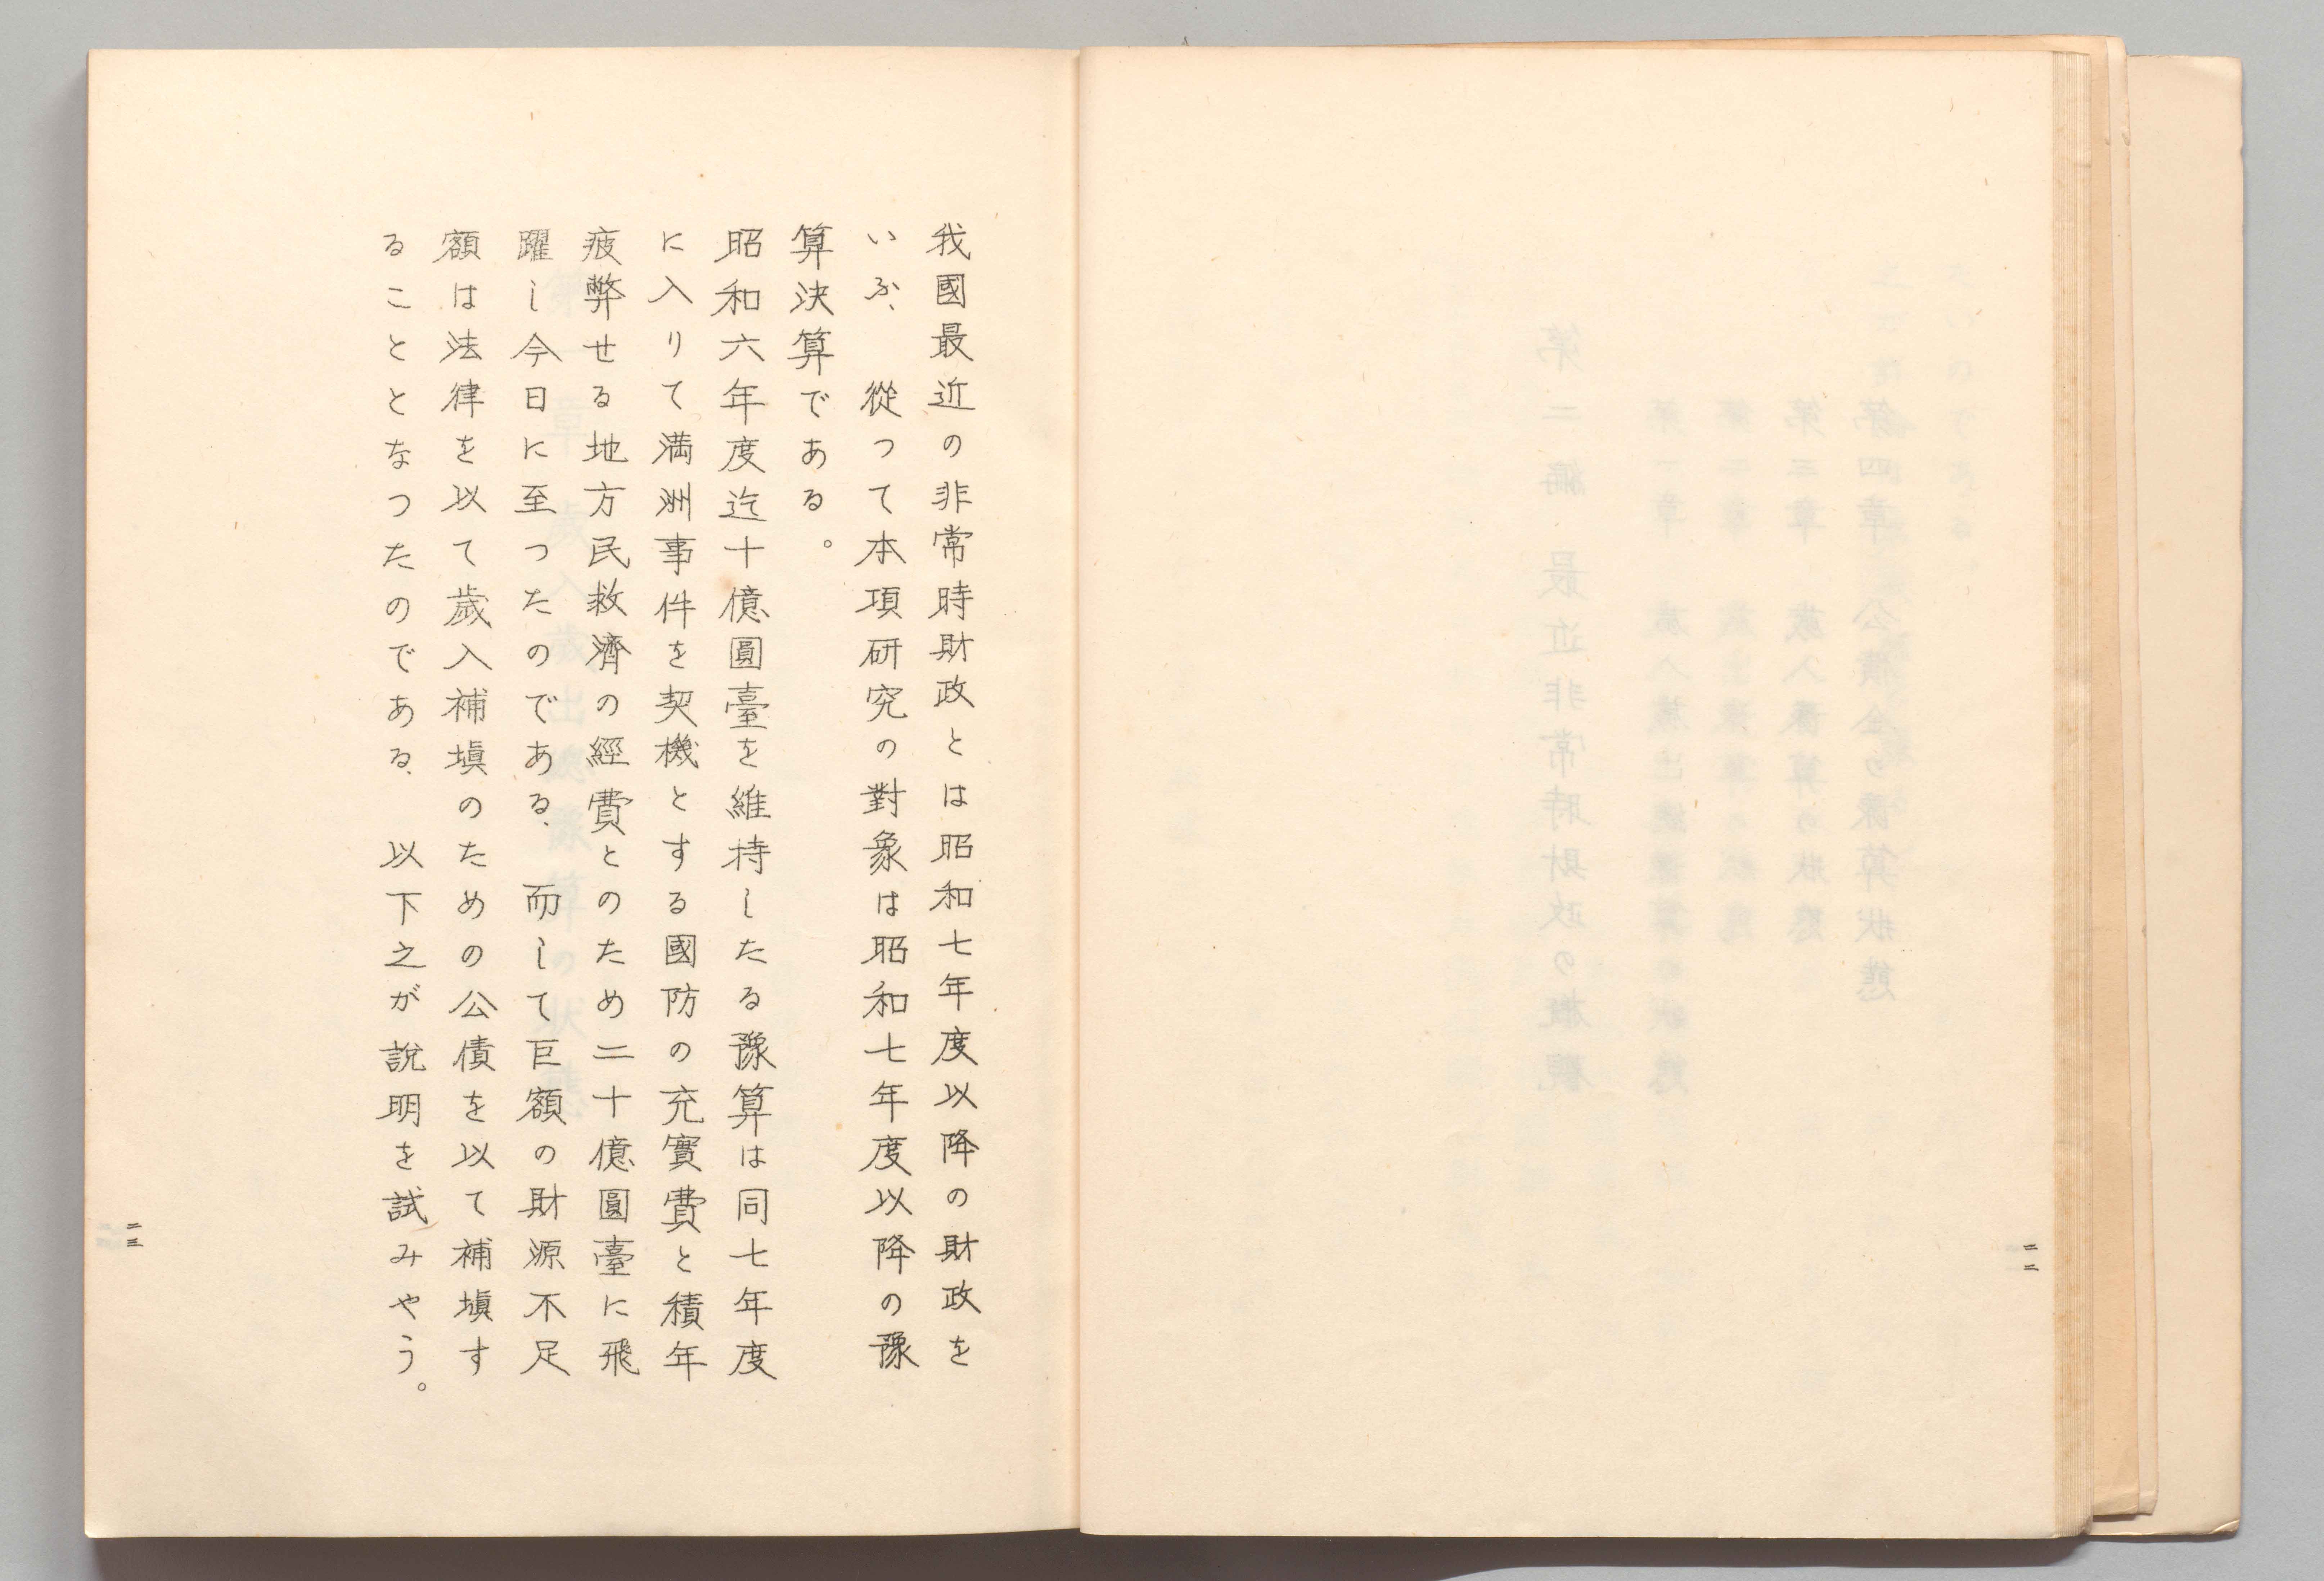 二二
我國最近の非常時財政とは昭和七年度以降の財政を
いふ、從つて本項研究の對象は昭和七年度以降の豫
算決算である。
昭和六年度迄十億圓臺を維持したる豫算は同七年度
に入りて満洲事件を契機とする國防の充實費と積年
疲弊せる地方民救濟の經費とのため二十億圓臺に飛
躍し今日に至つたのである、而して巨額の財源不足
額は法律を以て歲入補塡のための公債を以て補塡す
ることとなつたのである、以下之が說明を試みやう。
二三